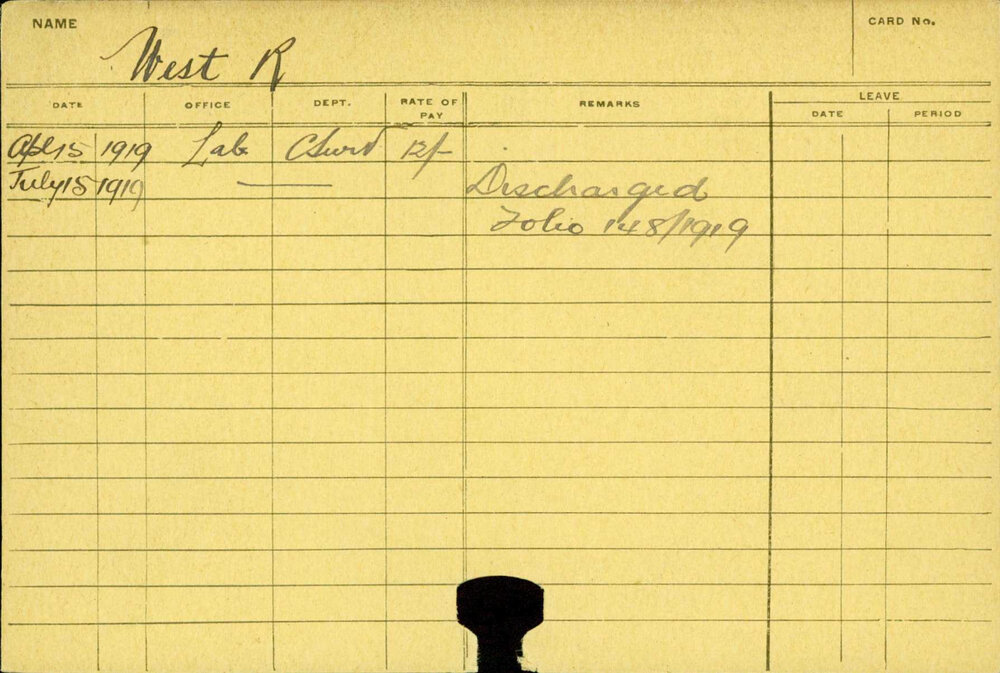 NAME West R CARD No.
DATE OFFICE DEPT. RATE OF PAY REMARKS LEAVE
DATE PERIOD
Apl 15 1919 Lab 12/-
July 15 1919 —— Discharged
Folio 148/1919